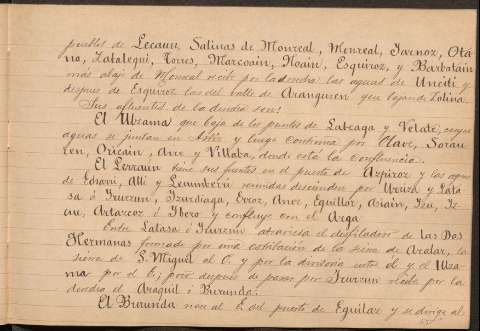 pueblos de Lecaun, Salinas de Monreal, Monreal, Yarnoz, Otá
no, Zabalegui, Torres, Marcoain, Noain, Esquiroz, y Barbatain
más abajo de Monreal recibe por la derecha las aguas de Unciti y
despues de Esquiroz las del valle de Aranguren que bajan de Zolina.
Sus afluentes de la derecha son:
El Ulzama que baja de los puertos de Labeaga y Velate, cuyas
aguas se juntan en y luego continua por Olave, Sorau
ren, Oricain, Arre y Villaba, donde está la confluencia.
El Lerraun tiene sus fuentes en el puerto de Azpiroz y las aguas
de Echarri, Alli y Lecumberri reunidas descienden por Urriza y Lata
sa ó Irurzun, Izurdiaga, Erroz, Anoz, Eguillor, Asiain, Izu, Iz
cue, Artazcoz é Ibero y confluye con el Arga
Entre Latasa é Irurzun atraviesa el desfiladero de las Dos
Hermanas formado por una estribacion de la sierra de Aralar, la
sierra de S. Miguel al O. y por la divisoria entre él y el Ulza
ma por el E; poco despues de pasar por Irurzun recibe por la
derecha el Araquil ó Burunda.
El Burunda nace al E. del puerto de Eguilaz y se dirige al